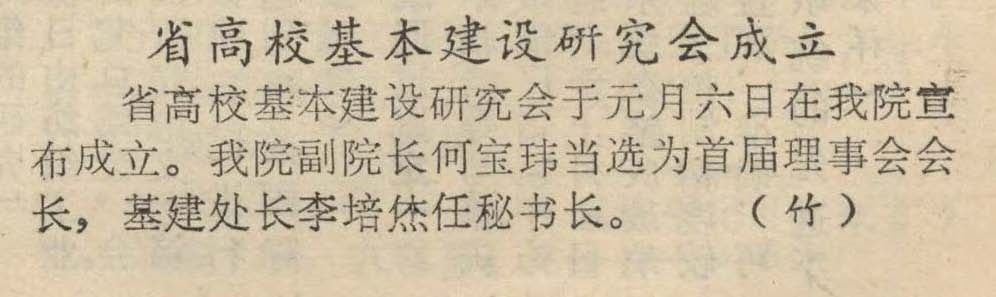 省高校基本建设研究会成立
省高校基本建设研究会于元月六日在我院宣
布成立。我院副院长何宝玮当选为首届理事会会
长，基建处长李培烋任秘书长。　　（竹）